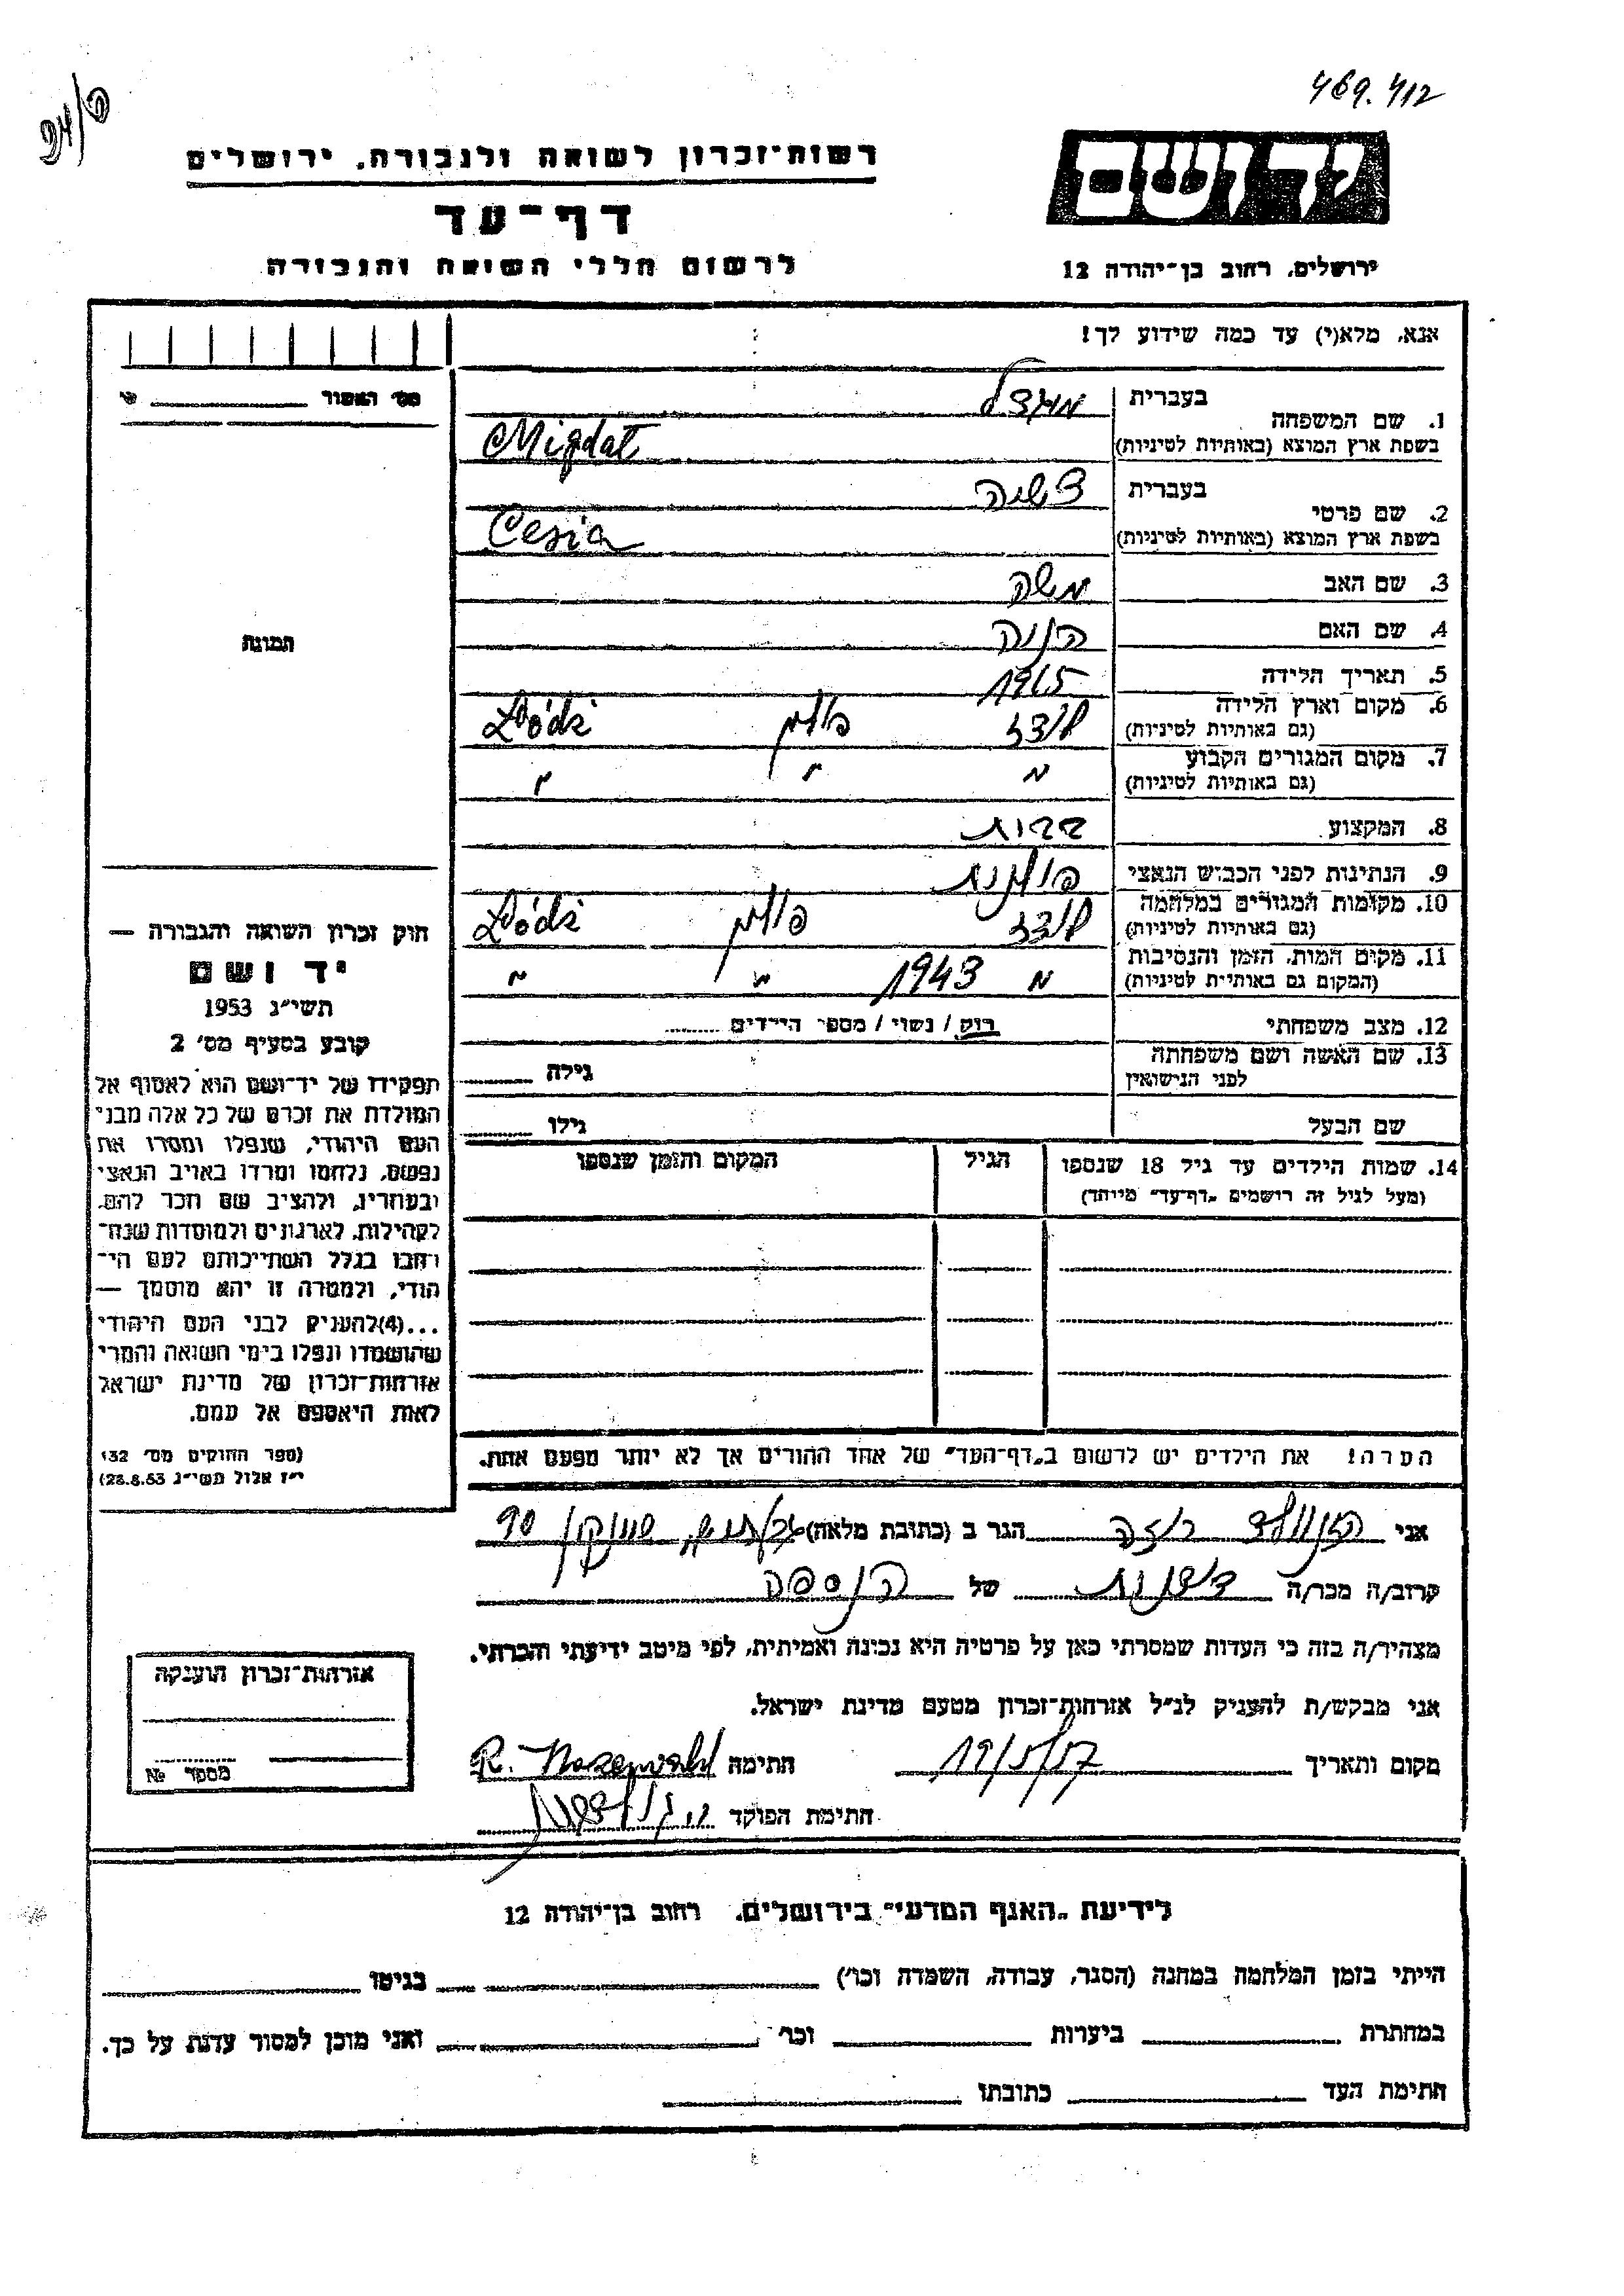 469.412
94/פ
יד ושם
רשות־זכרון לשואה ולגבורה, ירושלים
דף־עד
לרשום חללי השואה והגבורה
ירושלים, רחוב בן־יהודה 12
אנא, מלא(י) עד כמה שידוע לך!
מס' האסיר
1. שם המשפחה בעברית מיגדל
בשפת ארץ המוצא (באותיות לטיניות) Migdał
2. שם פרטי בעברית צשיה
בשפת ארץ המוצא (באותיות לטיניות) Cesia
3. שם האב משה
4. שם האם חנה
5. תאריך הלידה 1915
6. מקום וארץ הלידה לודז פולין Łódź
(גם באותיות לטיניות)
7. מקום המגורים הקבוע " " "
(גם באותיות לטיניות)
8. המקצוע
9. הנתינות לפני הכבוש הנאצי פולנית
10. מקומות המגורים במלחמה לודז פולין Łódź
(גם באותיות לטיניות)
11. מקום המות, הזמן והנסיבות " 1943 " "
(המקום גם באותיות לטיניות)
12. מצב משפחתי רוק / נשוי / מספר הילדים
13. שם האשה ושם משפחתה
לפני הנישואין גילה
שם הבעל גילו
14. שמות הילדים עד גיל 18 שנספו הגיל המקום והזמן שנספו
(מעל לגיל זה רושמים „דף־עד" מיוחד)
הערה! את הילדים יש לרשום ב„דף־העד" של אחד ההורים אך לא יותר מפעם אחת.
תמונה
חוק זכרון השואה והגבורה —
יד ושם
תשי"ג 1953
קובע בסעיף מס' 2
תפקידו של יד־ושם הוא לאסוף אל
המולדת את זכרם של כל אלה מבני
העם היהודי, שנפלו ומסרו את
נפשם, נלחמו ומרדו באויב הנאצי
ובעוזריו, ולהציב שם וזכר להם,
לקהילות, לארגונים ולמוסדות שנח־
רבו בגלל השתייכותם לעם הי־
הודי, ולמטרה זו יהא מוסמך —
...(4)להעניק לבני העם היהודי
שהושמדו ונפלו בימי השואה והמרי
אזרחות־זכרון של מדינת ישראל
לאות היאספם אל עמם.
(ספר החוקים מס' 132
י"ז אלול תשי"ג 28.8.53)
אני רוזה הגר ב (כתובת מלאה) 90
קרוב/ה מכר/ה של הנספה
מצהיר/ה בזה כי העדות שמסרתי כאן על פרטיה היא נכונה ואמיתית, לפי מיטב ידיעתי והכרתי.
אני מבקש/ת להעניק לנ"ל אזרחות־זכרון מטעם מדינת ישראל.
מקום ותאריך 19/5/57 חתימה R.
חתימת הפוקד
אזרחות־זכרון הוענקה
מספר №
לידיעת „האגף המדעי" בירושלים, רחוב בן־יהודה 12
הייתי בזמן המלחמה במחנה (הסגר, עבודה, השמדה וכו') בגיטו
במחתרת ביערות וכו' ואני מוכן למסור עדות על כך.
חתימת העד כתובתו